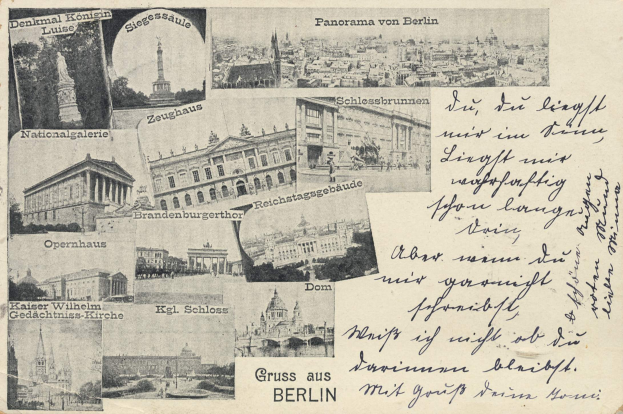 Denkmal Königin
Luise
Siegessäule
Panorama von Berlin
Zeughaus
Schlossbrunnen
Nationalgalerie
Brandenburgerthor
Reichstagsgebäude
Opernhaus
Kaiser Wilhelm
Gedächtniss-Kirche
Kgl. Schloss
Dom
Gruss aus
BERLIN
Du, du liegst
mir im Sinn,
Liegst mir
wahrhaftig
schon lange
drin,
Aber wenn du
mir garnicht
schreibst,
Weiß ich nicht ob du
darinnen bleibst.
Mit Gruß deine
schöne Augen
roten Mund
liebe Minna